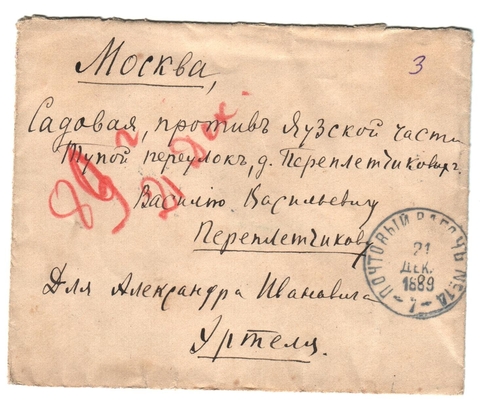 Москва,
3
Садовая, противъ Яузской части
Тупой переулокъ, д. Переплетчиковыхъ.
Василію Васильевичу
Переплетчикову
Для Александра Ивановича
Уртеля.
89 г.
21 Дек.
ПОЧТОВЫЙ ВАГОНЪ № 14
21
ДЕК.
1889